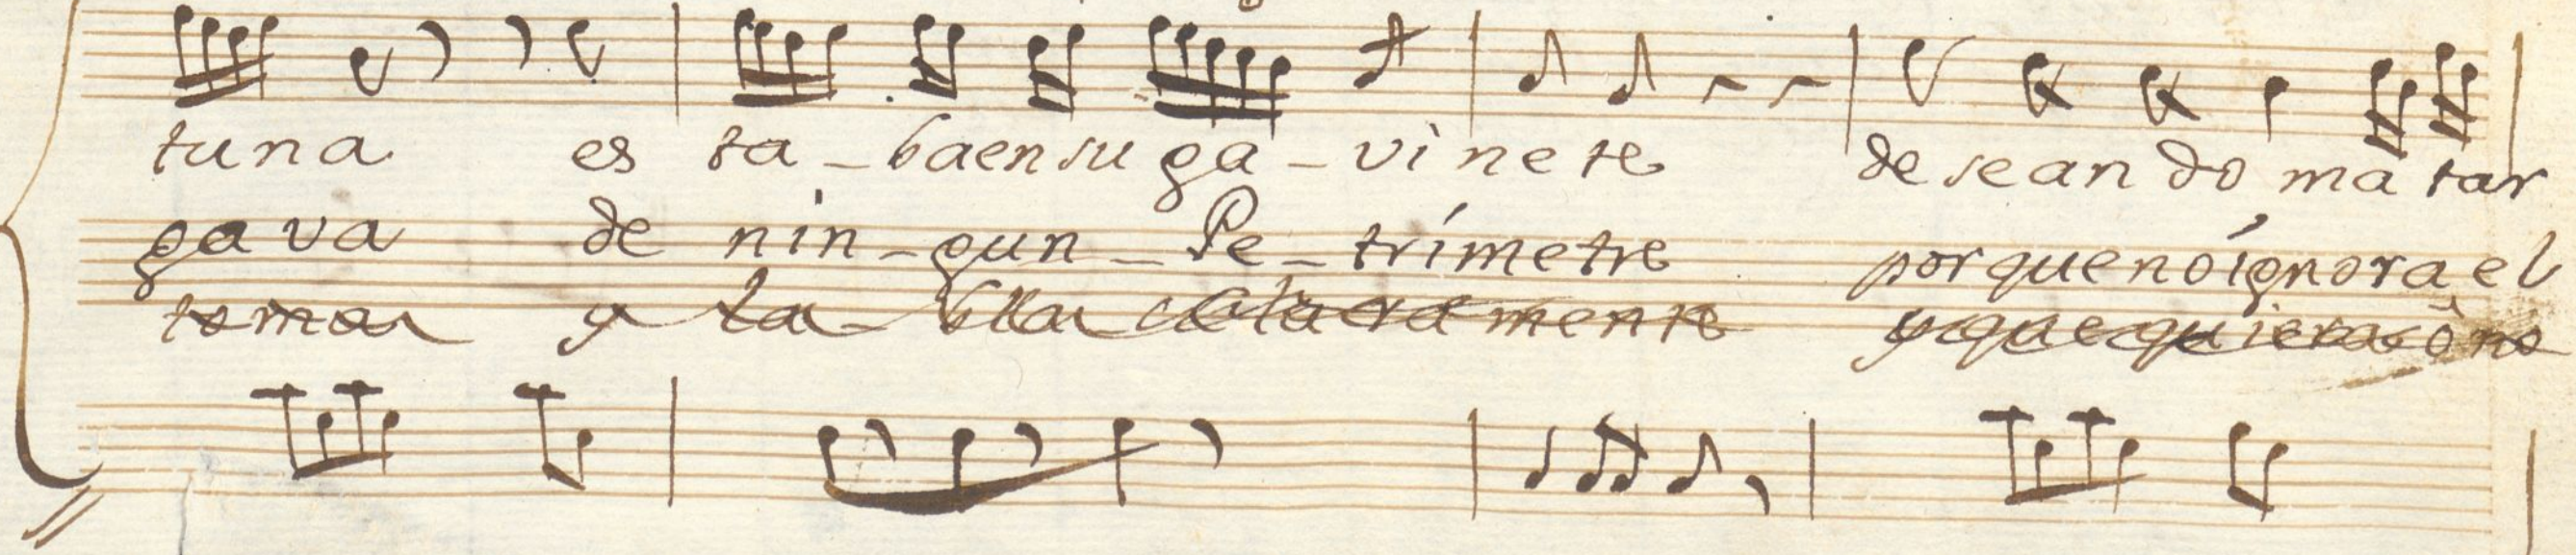 tuna es ta - baensu ga - vi nete desean do ma tar
gava de nin - gun - Pe - trímetre porquenóígnora el
toma y la blla claramente y que quiera ô no